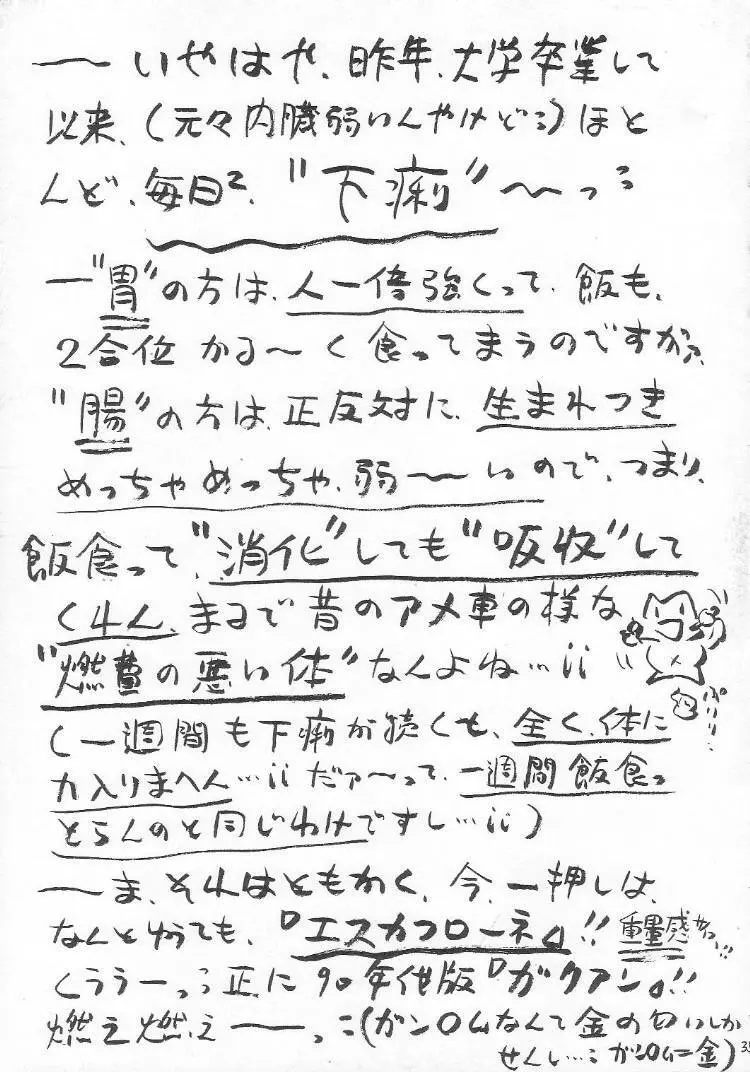 ──いやはや、昨年、大学卒業して
以来、(元々内臓弱いんやけど…)ほと
んど、毎日²、"下痢"〜〜っ…
一"胃"の方は、人一倍強くって、飯も、
2合位かる〜く食ってまうのですがァ、
"腸"の方は、正反対に、生まれつき
めっちゃめっちゃ、弱〜〜いので、つまり、
飯食って、"消化"しても"吸収"して
くれん、まるで昔のアメ車の様な
"燃費の悪い体"なんよね…ii
ぷりり…
(一週間も下痢が続くと、全く、体に
力入りまへん…ii だァ〜って、一週間飯食っ
とらんのと同じわけですし…ii)
──ま、それはともかく、今、一押しは、
なんと言っても、『エスカフローネ』!! 重量感せっ…!!
くううーっ…正に90年代版『ガクアン』!!
燃え燃え──っ…(ガンOムなんて金の匂いしか
せんし… ガンOム=金)